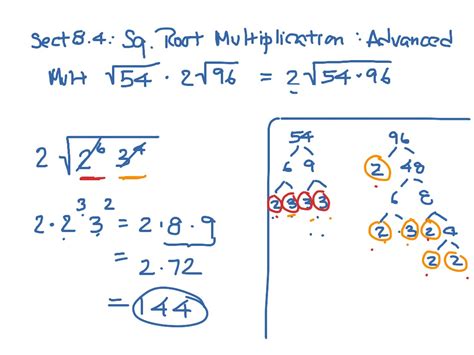 Sect 8.4: Sq. Root Multiplication: Advanced
Mult √54 · 2√96 = 2√54·96
2 √2⁶ 3⁴
2 · 2³ 3² = 2 · 8 · 9
= 2 · 72
= 144
54
6 9
2 3 3 3
96
2 48
6 8
2 3 2 4
2 2